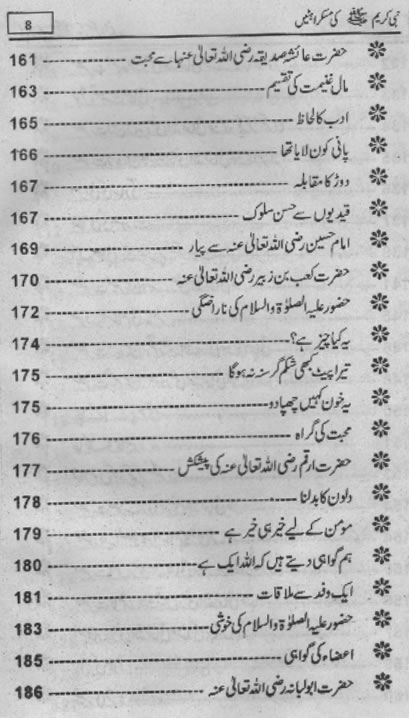 نبی کریم ﷺ کی مسکراہٹیں 8
حضرت عائشہ صدیقہ رضی اللہ تعالیٰ عنہا سے محبت ---------- 161
مال غنیمت کی تقسیم ---------- 163
ادب کا لحاظ ---------- 165
پانی کون لایا تھا ---------- 166
دوڑ کا مقابلہ ---------- 167
قیدیوں سے حسن سلوک ---------- 167
امام حسین رضی اللہ تعالیٰ عنہ سے پیار ---------- 169
حضرت کعب بن زہیر رضی اللہ تعالیٰ عنہ ---------- 170
حضور علیہ الصلوٰۃ والسلام کی ناراضگی ---------- 172
یہ کیا چیز ہے؟ ---------- 174
تیرا پیٹ کبھی شکم گرسنہ نہ ہوگا ---------- 175
یہ خون کہیں چھپا دو ---------- 175
محبت کی گراہ ---------- 176
حضرت ارقم رضی اللہ تعالیٰ عنہ کی پیشکش ---------- 177
دلوں کا بدلنا ---------- 178
مومن کے لیے خیر ہی خیر ہے ---------- 179
ہم گواہی دیتے ہیں کہ اللہ ایک ہے ---------- 180
ایک وفد سے ملاقات ---------- 181
حضور علیہ الصلوٰۃ والسلام کی خوشی ---------- 183
اعضاء کی گواہی ---------- 185
حضرت ابولبابہ رضی اللہ تعالیٰ عنہ ---------- 186